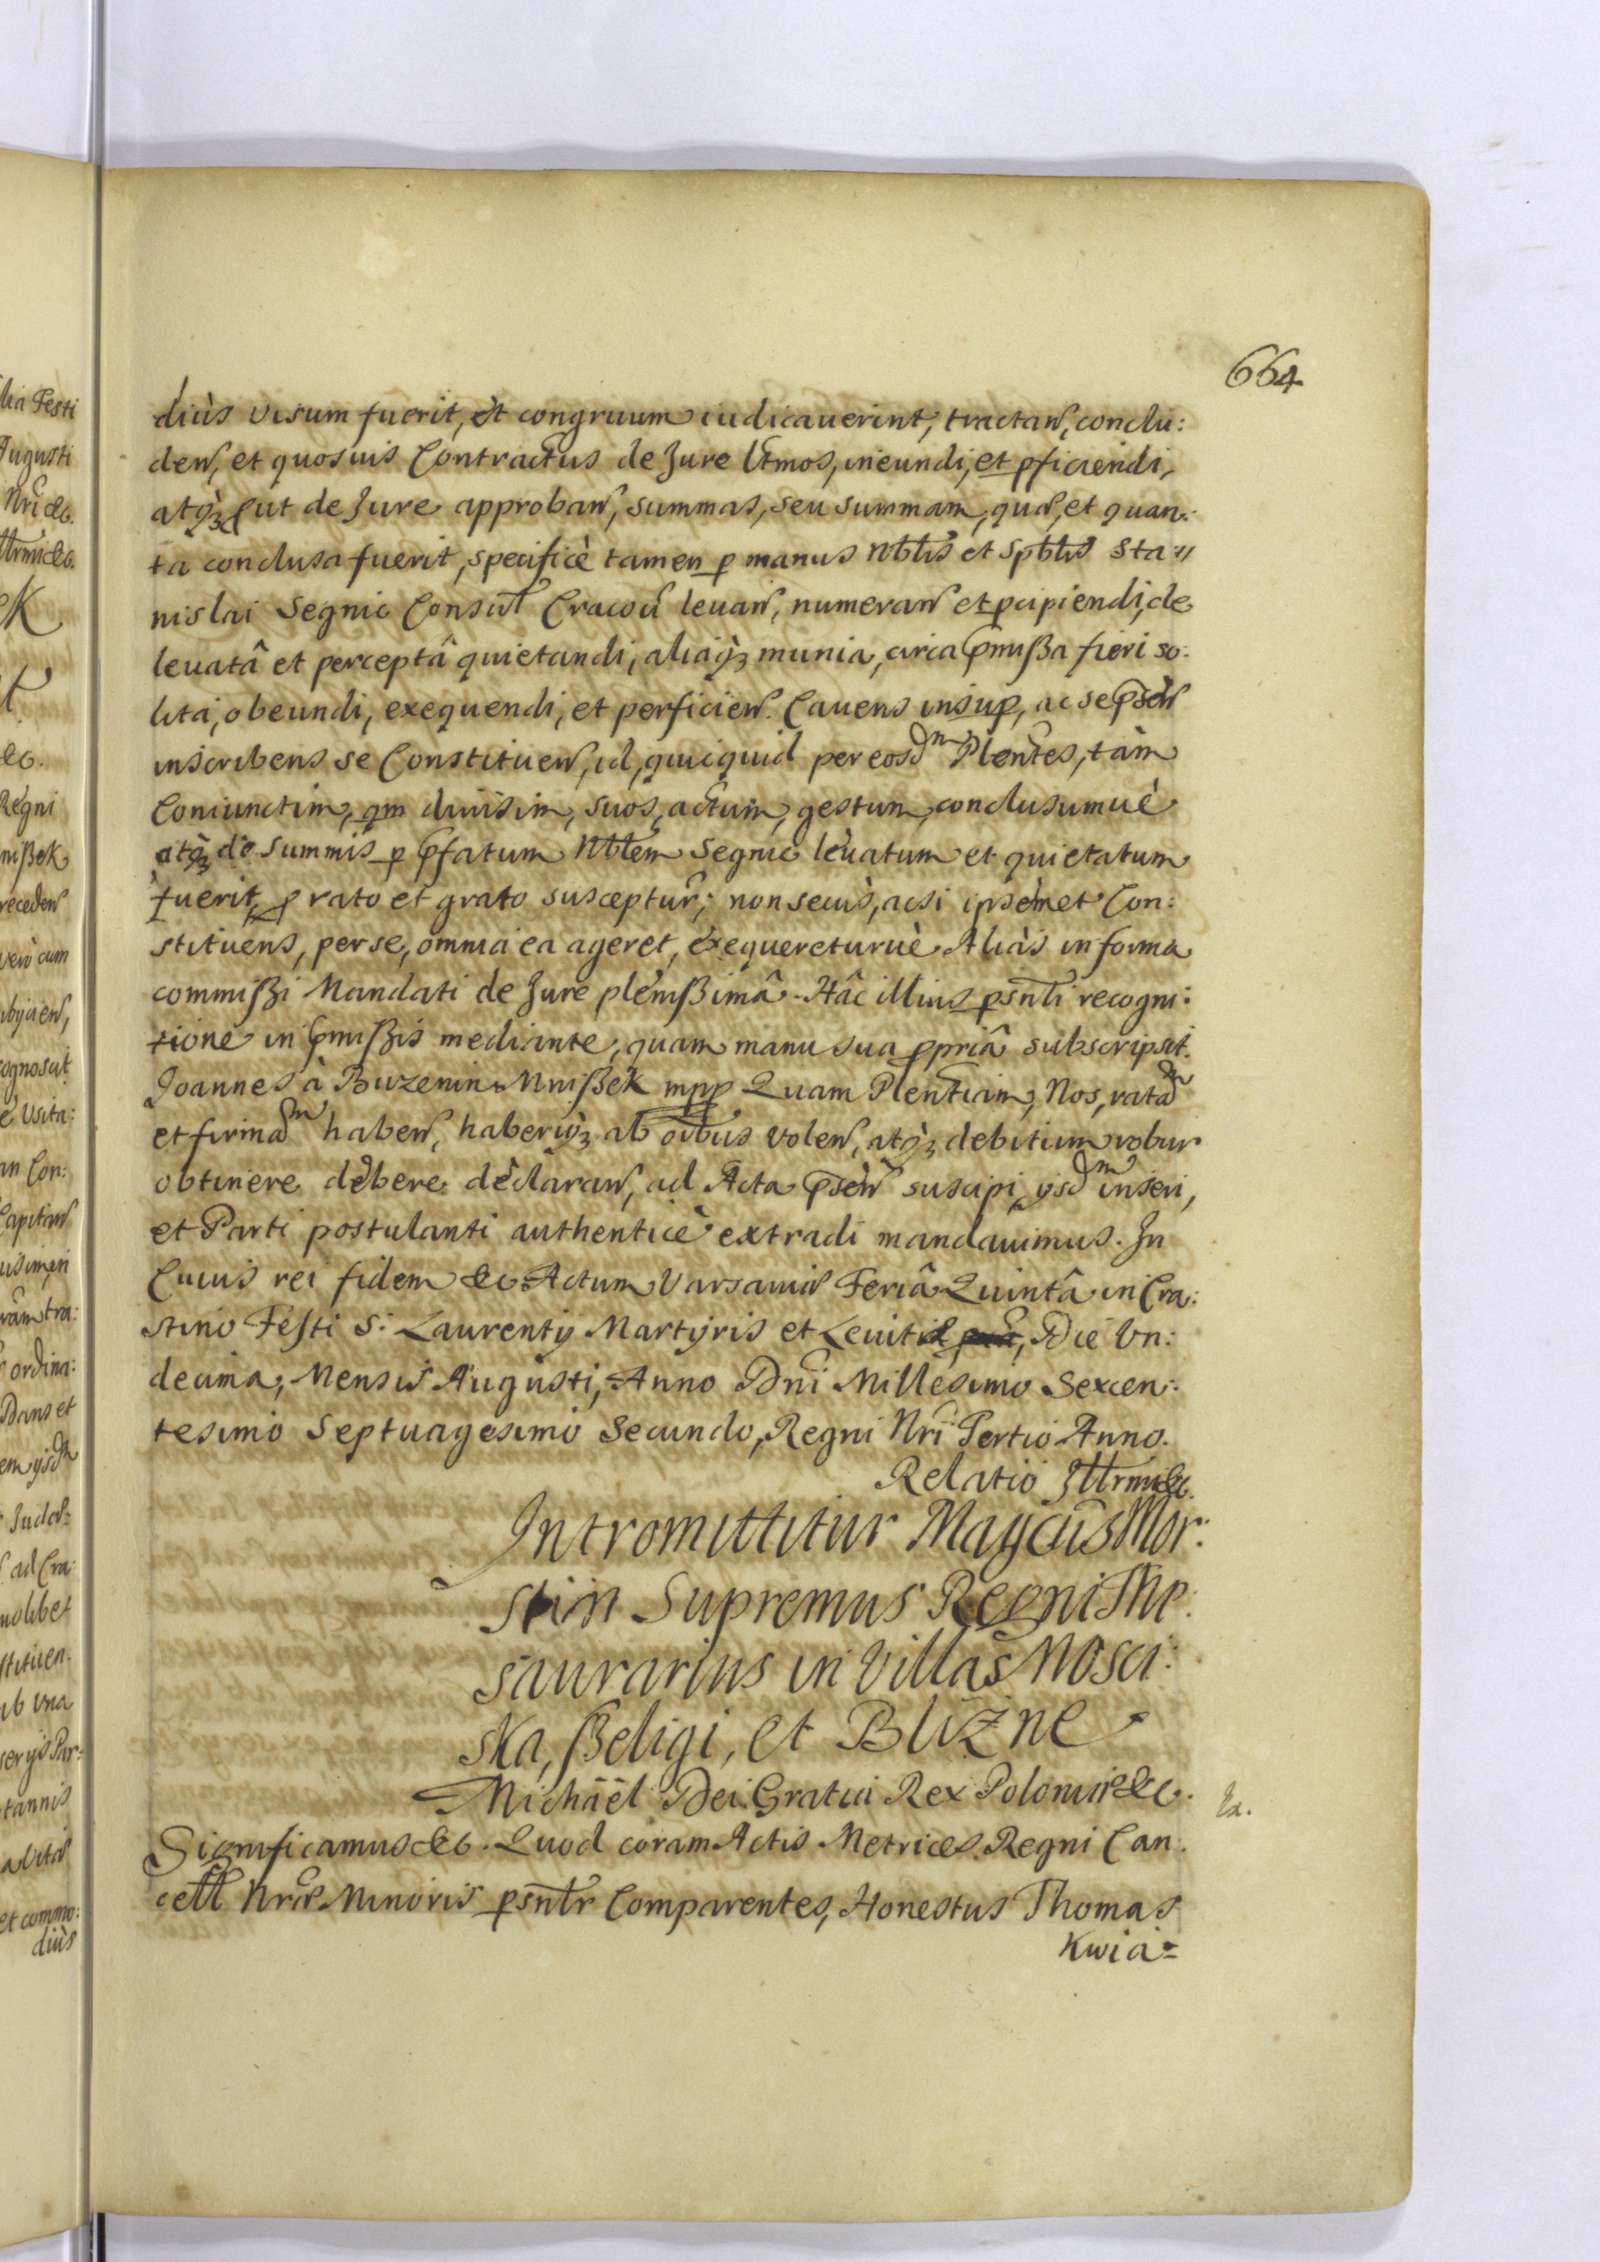 664
diùs visum fuerit, et congruum iudicauerint, tractan, conclu:
den, et quosuis Contractus de Jure Ltmos, ineundi, et pficiendi,
atq, put de Jure approban, summas, seu summam, quae, et quan:
ta conclusa fuerit, specificè tamen p manus Nbblis et Spbblis Sta
nislai Segnic Consul Cracou leuan, numeran et pcipiendi, de
leuatâ et perceptâ quietandi, aliaq munia, circa pmißa fieri so:
lita, obeundi, exequendi, et perficien. Cauens insup, ac se psen
inscribens se Constituen, id, quicquid per eosdm Plentes, tàm
Coniunctim, qm diuisim, suos, actum, gestum, conclusumuè
atq de summis p pfatum Nbblem Segnic leuatum et quietatum
fuerit, p rato et grato suscepturũ; non secùs, acsi ipsèmet Con:
stituens, per se, omnia ea ageret, exequereturuè. Aliàs in forma
commißi Mandati de Jure plenißimâ. Hâc illius psnti recogni:
tione in pmißis mediante, quam manu sua ppriâ subscripsit.
Joannes à Buzenin Mnißek mpp Quam Plentiam, Nos, ratam
et firmam haben, haberiq ab oibus volen, atq debitum robur
obtinere debere declaran, ad Acta psen suscipi, ysdm inseri,
et Parti postulanti authenticè extradi mandauimus. In
Cuius rei fidem &c Actum Varsauiae Feriâ Quintâ in Cra:
stino Festi S. Laurentij Martyris et Leuitae, Die Vn:
decima, Mensis Augusti, Anno Dni Millesimo Sexcen:
tesimo Septuagesimo Secundo, Regni Nri Tertio Anno.
Relatio Illrmi &c.
Intromittitur Magcus Mor:
stin Supremus Regni The:
saurarius in Villas Mosci:
ska, ßeligi, et Blizne
Michäël Dei Gratia Rex Poloniae &c.
Significamus &c. Quod coram Actis Metrices Regni Can:
cell Nrae Minoris psntr Comparentes, Honestus Thomas
Kwia=